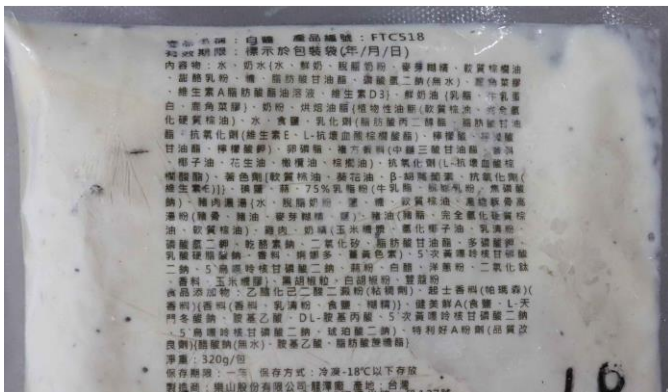 產品名稱：白醬 產品編號：FTC518
有效期限：標示於包裝袋(年/月/日)
內容物：水、奶水(水、鮮奶、脫脂奶粉、麥芽糊精、軟質棕櫚油
、酪乳粉、糖、脂肪酸甘油酯、磷酸氫二鈉(無水)、鹿角菜膠
、維生素A脂肪酸酯油溶液、維生素D3)、鮮奶油{乳脂、牛乳蛋
白、鹿角菜膠}、奶粉、烘焙油脂{植物性油脂(軟質棕油、完全氫
化硬質棕油)、水、食鹽、乳化劑(脂肪酸丙二醇酯、脂肪酸甘油
酯、抗氧化劑(維生素E、L-抗壞血酸棕櫚酸酯)、檸檬酸、
甘油酯、檸檬酸鉀)、卵磷脂、複方香料(中鏈三酸甘油酯、香料
、椰子油、花生油、橄欖油、棕櫚油)、抗氧化劑(L-抗壞血酸棕
櫚酸酯)、著色劑[軟質棕油、葵花油、β-胡蘿蔔素、抗氧化劑(
維生素E)]}、磺鹽、蒜、75%乳酪粉(牛乳脂、脫脂乳粉、焦磷酸
鈉)、豬肉濃湯(水、脫脂奶粉、鹽、糖、軟質棕油、豚骨高
湯粉(豬骨、豬油、麥芽糊精、鹽)、豬油(豬脂、完全氫化硬質棕
油、軟質棕油)、雞肉、奶精(玉米糖膠、氫化椰子油、乳清粉
、磷酸氫二鉀、乾酪素鈉、二氧化矽、脂肪酸甘油酯、多磷酸鉀、
乳酸硬脂酸鈉、香料、薑黃色素)、5'次黃嘌呤核苷磷酸
二鈉、5'鳥嘌呤核苷磷酸二鈉、蒜粉、白醋、洋蔥粉、二氧化鈦
、香料、玉米糖膠)、黑胡椒粒、白胡椒粉、荳蔻粉
食品添加物：乙醯化己二酸二澱粉(粘稠劑)、起士香料(帕瑪森)(
香料){香料(香料、乳清粉、食鹽、糊精)}、健美鮮A(食鹽、L-天
門冬酸鈉、胺基乙酸、DL-胺基丙酸、5'次黃嘌呤核苷磷酸二鈉
、5'鳥嘌呤核苷磷酸二鈉、琥珀酸二鈉)、特利好A粉劑(品質改
良劑){醋酸鈉(無水)、胺基乙酸、脂肪酸蔗糖酯}
淨重：320g/包
保存期限：一年 保存方式：冷凍-18℃以下存放
製造商：樂山股份有限公司 產地：台灣